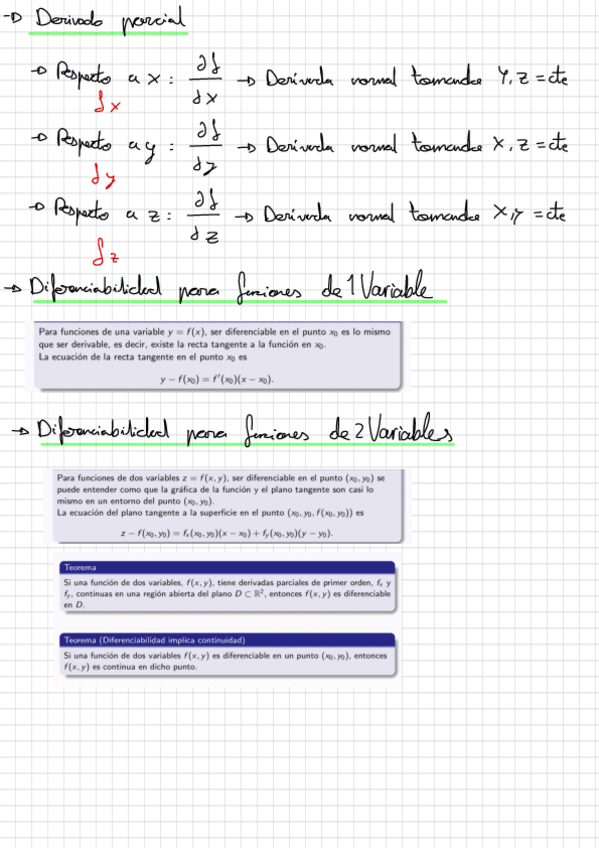 → Derivada parcial
→ Respecto a x : ∂f/∂x → Derivada normal tomando Y, z = cte
fx
→ Respecto a y : ∂f/∂y → Derivada normal tomando x, z = cte
fy
→ Respecto a z : ∂f/∂z → Derivada normal tomando x, y = cte
fz
→ Diferenciabilidad para funciones de 1 Variable
Para funciones de una variable y = f(x), ser diferenciable en el punto x₀ es lo mismo
que ser derivable, es decir, existe la recta tangente a la función en x₀.
La ecuación de la recta tangente en el punto x₀ es
y − f(x₀) = f′(x₀)(x − x₀).
→ Diferenciabilidad para funciones de 2 Variables
Para funciones de dos variables z = f(x, y), ser diferenciable en el punto (x₀, y₀) se
puede entender como que la gráfica de la función y el plano tangente son casi lo
mismo en un entorno del punto (x₀, y₀).
La ecuación del plano tangente a la superficie en el punto (x₀, y₀, f(x₀, y₀)) es
z − f(x₀, y₀) = fₓ(x₀, y₀)(x − x₀) + f_y(x₀, y₀)(y − y₀).
Teorema
Si una función de dos variables, f(x, y), tiene derivadas parciales de primer orden, fₓ y
f_y, continuas en una región abierta del plano D ⊂ ℝ², entonces f(x, y) es diferenciable
en D.
Teorema (Diferenciabilidad implica continuidad)
Si una función de dos variables f(x, y) es diferenciable en un punto (x₀, y₀), entonces
f(x, y) es continua en dicho punto.